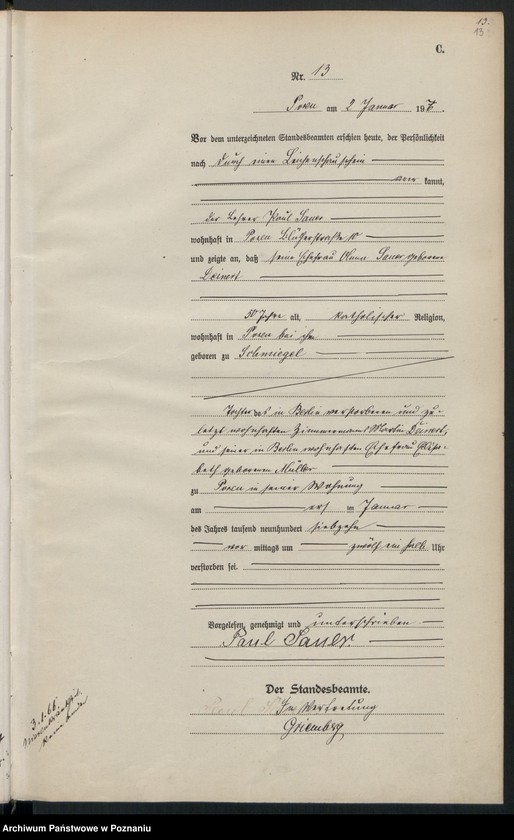 13.
13
C.
Nr. 13
Posen am 2 Januar 19
Vor dem unterzeichneten Standesbeamten erschien heute, der Persönlichkeit
nach durch einen Leichenschauschein
aner kannt,
der Lehrer Paul Sauer
wohnhaft in Posen Blücherstraße 10
und zeigte an, daß seine Ehefrau Sauer geborene
Deinert
Jahre alt, katholischer Religion,
wohnhaft in Posen bei ihm
geboren zu Schmiegel
Tochter des in Berlin verstorbenen und zu-
letzt wohnhaften Zimmermann Martin Deinert,
und seiner in Berlin wohnhaften Ehefrau Elisa-
beth geborenen Müller
zu Posen in seiner Wohnung
am ersten Januar
des Jahres tausend neunhundert siebzehn
vor mittags um zwölf ein halb Uhr
verstorben sei.
Vorgelesen, genehmigt und unterschrieben
Paul Sauer.
Der Standesbeamte.
In Vertretung
3.1.66.
Archiwum Państwowe w Poznaniu